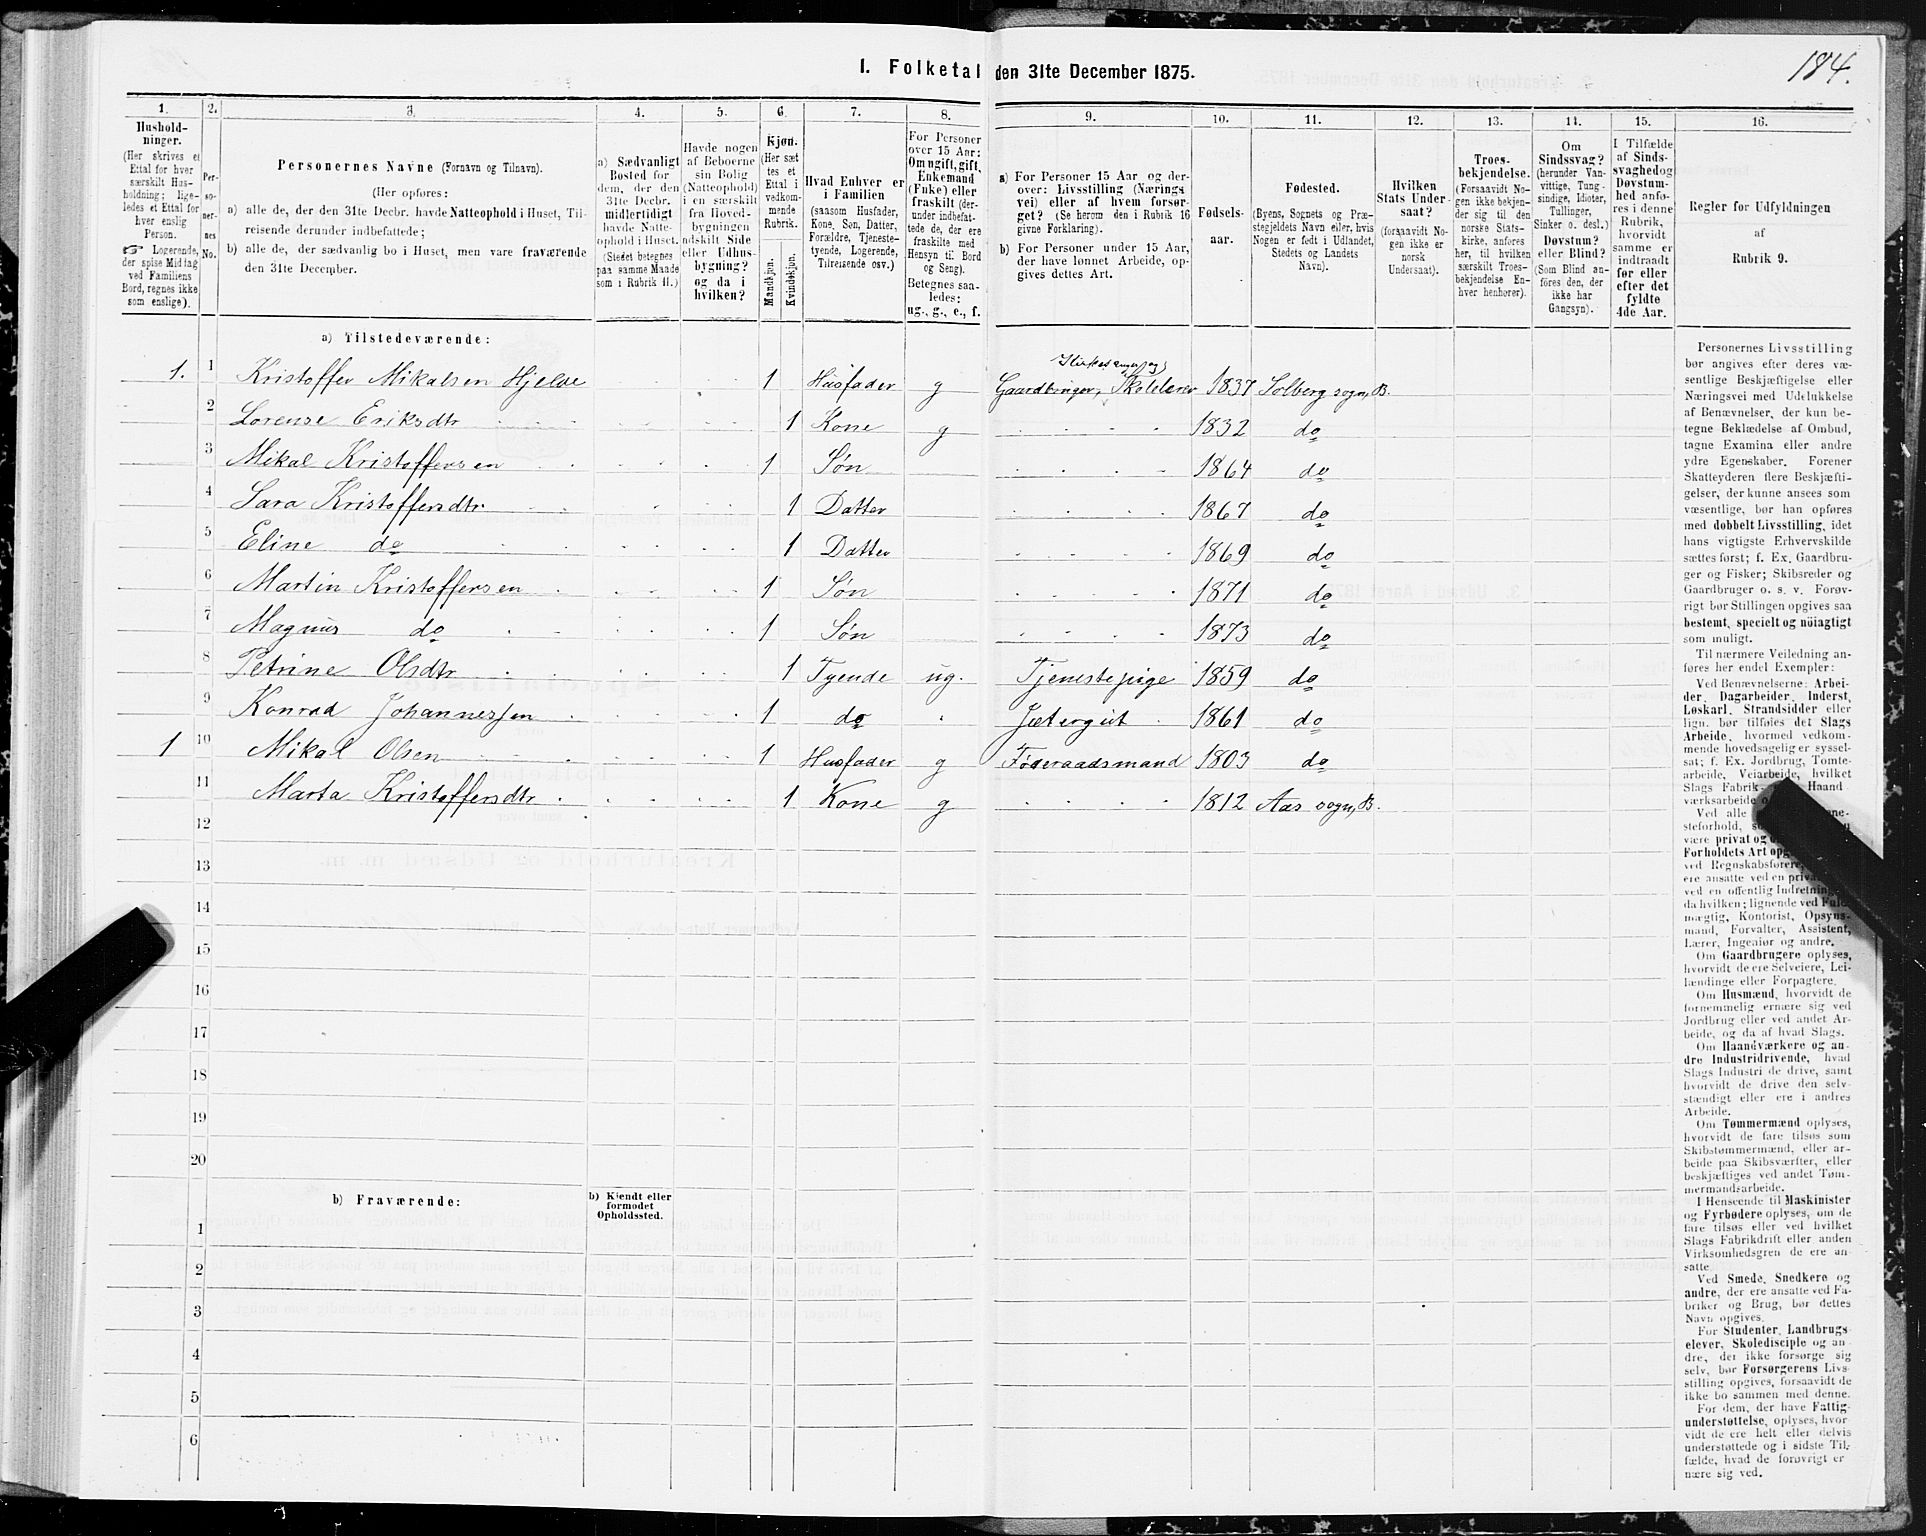 184.
1. Folketal den 31te December 1875.
1. 2. 3. 4. 5. 6. 7. 8. 9. 10. 11. 12. 13. 14. 15. 16.
Hushold-
ninger.
(Her skrives et
Ettal for hver
særskilt Hus-
holdning; lige-
ledes et Ettal for
hver enslig
Person.
☞ Logerende,
der spise Middag
ved Familiens
Bord, regnes ikke
som enslige).
Per-
so-
ner-
nes
No.
Personernes Navne (Fornavn og Tilnavn).
(Her opføres:
a) alle de, der den 31te Decbr. havde Natteophold i Huset, Til-
reisende derunder indbefattede;
b) alle de, der sædvanlig bo i Huset, men vare fraværende
den 31te December.
a) Sædvanligt
Bosted for
dem, der den
31te Decbr.
midlertidigt
havde Natte-
ophold i Huset.
(Stedet betegnes
paa samme Maade
som i Rubrik 11.)
Havde nogen
af Beboerne
sin Bolig
(Natteophold)
i en særskilt
fra Hoved-
bygningen
adskilt Side
eller Udhus-
bygning?
og da i
hvilken?
Kjøn.
(Her sæt-
tes et
Ettal i
vedkom-
mende
Rubrik.
Mandkjøn.
Kvindekjøn.
Hvad Enhver er
i Familien
(saasom Husfader,
Kone, Søn, Datter,
Forældre, Tjeneste-
tyende, Logerende,
Tilreisende osv.)
For Personer
over 15 Aar:
Om ugift, gift,
Enkemand
(Enke) eller
fraskilt (der-
under indbefat-
tede de, der ere
fraskilte med
Hensyn til Bord
og Seng).
Betegnes saa-
ledes:
ug., g., e., f.
a) For Personer 15 Aar og der-
over: Livsstilling (Nærings-
vei) eller af hvem forsør-
get? (Se herom den i Rubrik 16
givne Forklaring).
b) For Personer under 15 Aar,
der have lønnet Arbeide, op-
gives dettes Art.
Fødsels-
aar.
Fødested.
(Byens, Sognets og Præ-
stegjeldets Navn eller, hvis
Nogen er født i Udlandet,
Stedets og Landets
Navn).
Hvilken
Stats Under-
saat?
(forsaavidt No-
gen ikke er
norsk
Undersaat).
Troes-
bekjendelse.
(Forsaavidt No-
gen ikke bekjen-
der sig til den
norske Stats-
kirke, anføres
her, til hvilken
særskilt Troes-
bekjendelse En-
hver henhører).
Om
Sindssvag?
(herunder Van-
vittige, Tung-
sindige, Idioter,
Tullinger,
Sinker o. desl.)
Døvstum?
eller Blind?
(Som Blind an-
føres den, der
ikke har
Gangsyn).
I Tilfælde
af Sinds-
svaghed og
Døvstum-
hed anfø-
res i denne
Rubrik,
hvorvidt
samme er
indtraadt
før eller
efter det
fyldte
4de Aar.
Regler for Udfyldningen
af
Rubrik 9.
a) Tilstedeværende:
1. 1 Kristoffer Mikalsen Hjelde 1 Husfader g Kirkesanger, Gaardbruger, Skolelærer 1837 Solberg sogn, B.
2 Lorense Eriksdtr 1 Kone g 1832 do
3 Mikal Kristoffersen 1 Søn 1864 do
4 Sara Kristoffersdtr 1 Datter 1867 do
5 Eline do 1 Datter 1869 do
6 Martin Kristoffersen 1 Søn 1871 do
7 Magnus do 1 Søn 1873 do
8 Petrine Olsdtr 1 Tyende ug. Tjenestepige 1859 do
9 Konrad Johannessen 1 do Jætergut 1861 do
1 10 Mikal Olsen 1 Husfader g Føderaadsmand 1803 do
11 Marta Kristoffersdtr 1 Kone g 1812 Aas sogn, B.
12
13
14
15
16
17
18
19
20
b) Fraværende:
b) Kjendt eller
formodet
Opholdssted.
1
2
3
4
5
6
Personernes Livsstilling
bør angives efter deres væ-
sentlige Beskjæftigelse eller
Næringsvei med Udelukkelse
af Benævnelser, der kun be-
tegne Beklædelse af Ombud,
tagne Examina eller andre
ydre Egenskaber. Forener
Skatteyderen flere Beskjæfti-
gelser, der kunne ansees som
væsentlige, bør han opføres
med dobbelt Livsstilling, idet
hans vigtigste Erhvervskilde
sættes først; f. Ex. Gaardbru-
ger og Fisker; Skibsreder og
Gaardbruger o. s. v. Forøv-
rigt bør Stillingen opgives saa
bestemt, specielt og nöiagtigt
som muligt.
Til nærmere Veiledning an-
føres her endel Exempler:
Ved Benævnelserne: Arbei-
der, Dagarbeider, Inderst,
Løskarl, Strandsidder eller
lign. bør tilføies det Slags
Arbeide, hvormed vedkom-
mende hovedsagelig er syssel-
sat; f. Ex. Jordbrug, Tomte-
arbeide, Veiarbeide, hvilket
Slags Fabrik- Haand
værksarbeide
Ved alle
steforhold,
være privat og
Forholdets Art opg
ved Regnskabsførere,
ere ansatte ved en privat
ved en offentlig Indretning
da hvilken; lignende ved Fuld-
mægtig, Kontorist, Opsyns-
mand, Forvalter, Assistent,
Lærer, Ingeniør og andre.
Om Gaardbrugere oplyses,
hvorvidt de ere Selveiere, Lei-
lændinge eller Forpagtere.
Om Husmænd, hvorvidt de
fornemmelig ernære sig ved
Jordbrug eller ved andet Ar-
beide, og da af hvad Slags.
Om Haandværkere og an-
dre Industridrivende, hvad
Slags Industri de drive, samt
hvorvidt de drive den selv-
stændigt eller ere i andres
Arbeide.
Om Tømmermænd oplyses,
hvorvidt de fare tilsøs som
Skibstømmermænd, eller ar-
beide paa Skibsværfter, eller
beskjæftiges ved andet Tøm-
mermandsarbeide.
I Henseende til Maskinister
og Fyrbødere oplyses, om de
fare tilsøs eller ved hvilket
Slags Fabrikdrift eller anden
Virksomhedsgren de ere an-
satte.
Ved Smede, Snedkere og
andre, der ere ansatte ved Fa-
briker og Brug, bør dettes
Navn opgives.
For Studenter, Landbrugs-
elever, Skoledisciple og an-
dre, der ikke forsørge sig
selv, bør Forsørgerens Livs-
stilling opgives, forsaavidt de
ikke bo sammen med denne.
For dem, der have Fattig-
understøttelse, oplyses, hvor-
vidt de ere helt eller delvis
understøttede og i sidste Til-
fælde, hvad de forøvrigt er
nære sig ved.